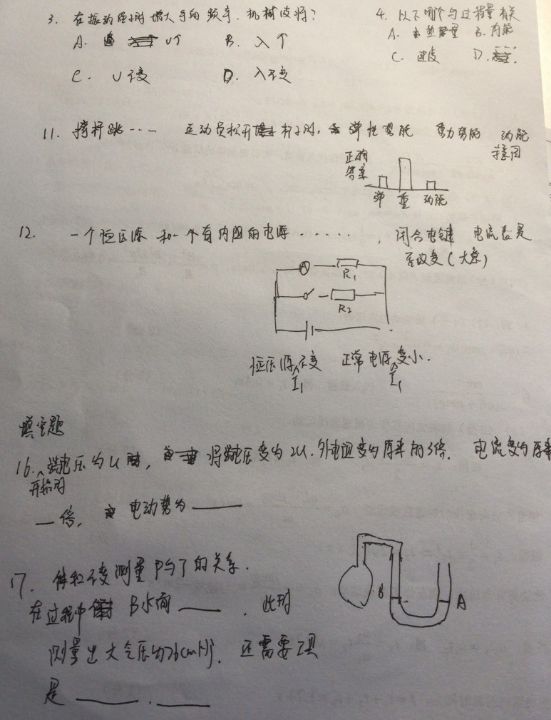 3. 在振动绳时增大手的频率,机械波将?
A. v个 B. 入个
C. v不变 D. 入不变
4. 以下哪个与过程量有关
A. B. 内能
C. 速度 D.
11. 撑杆跳…… 运动员松开杆子时, 弹性势能 重力势能 动能
正确
答案
弹 重 动能
12. 一个恒压源和一个有内阻的电源……,闭合电键 电流表是
否改变(大意)
A R₁
R₂
恒压源不变 正常电源变小.
I₁ I₁
填空题
16. 端电压为U, 将端电压变为2U.外电阻变为原来的3倍. 电流变为原来
开始时
__倍, 电动势为____
17. 体积不变测量P与T的关系.
在过程中 B水面____, 此时
测量出大气压为76cmHg, 还需要工具
是____.____
B A